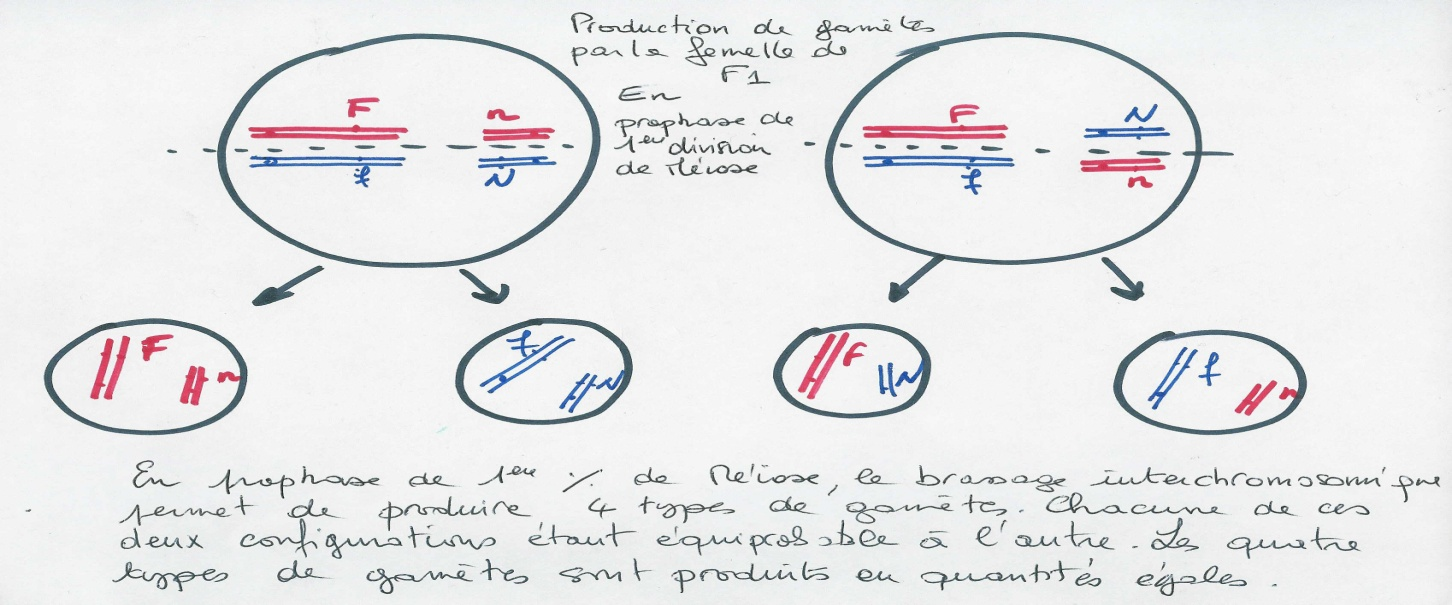 Production de gamètes
par la femelle de
F1
En
prophase de
1ère division
de Méiose
F
n
f
N
F
N
f
n
F
n
f
N
F
N
f
n
En prophase de 1ère % de Méiose, le brassage interchromosomique
permet de produire 4 types de gamètes. Chacune de ces
deux configurations étant équiprobable à l'autre. Les quatre
types de gamètes sont produits en quantités égales.